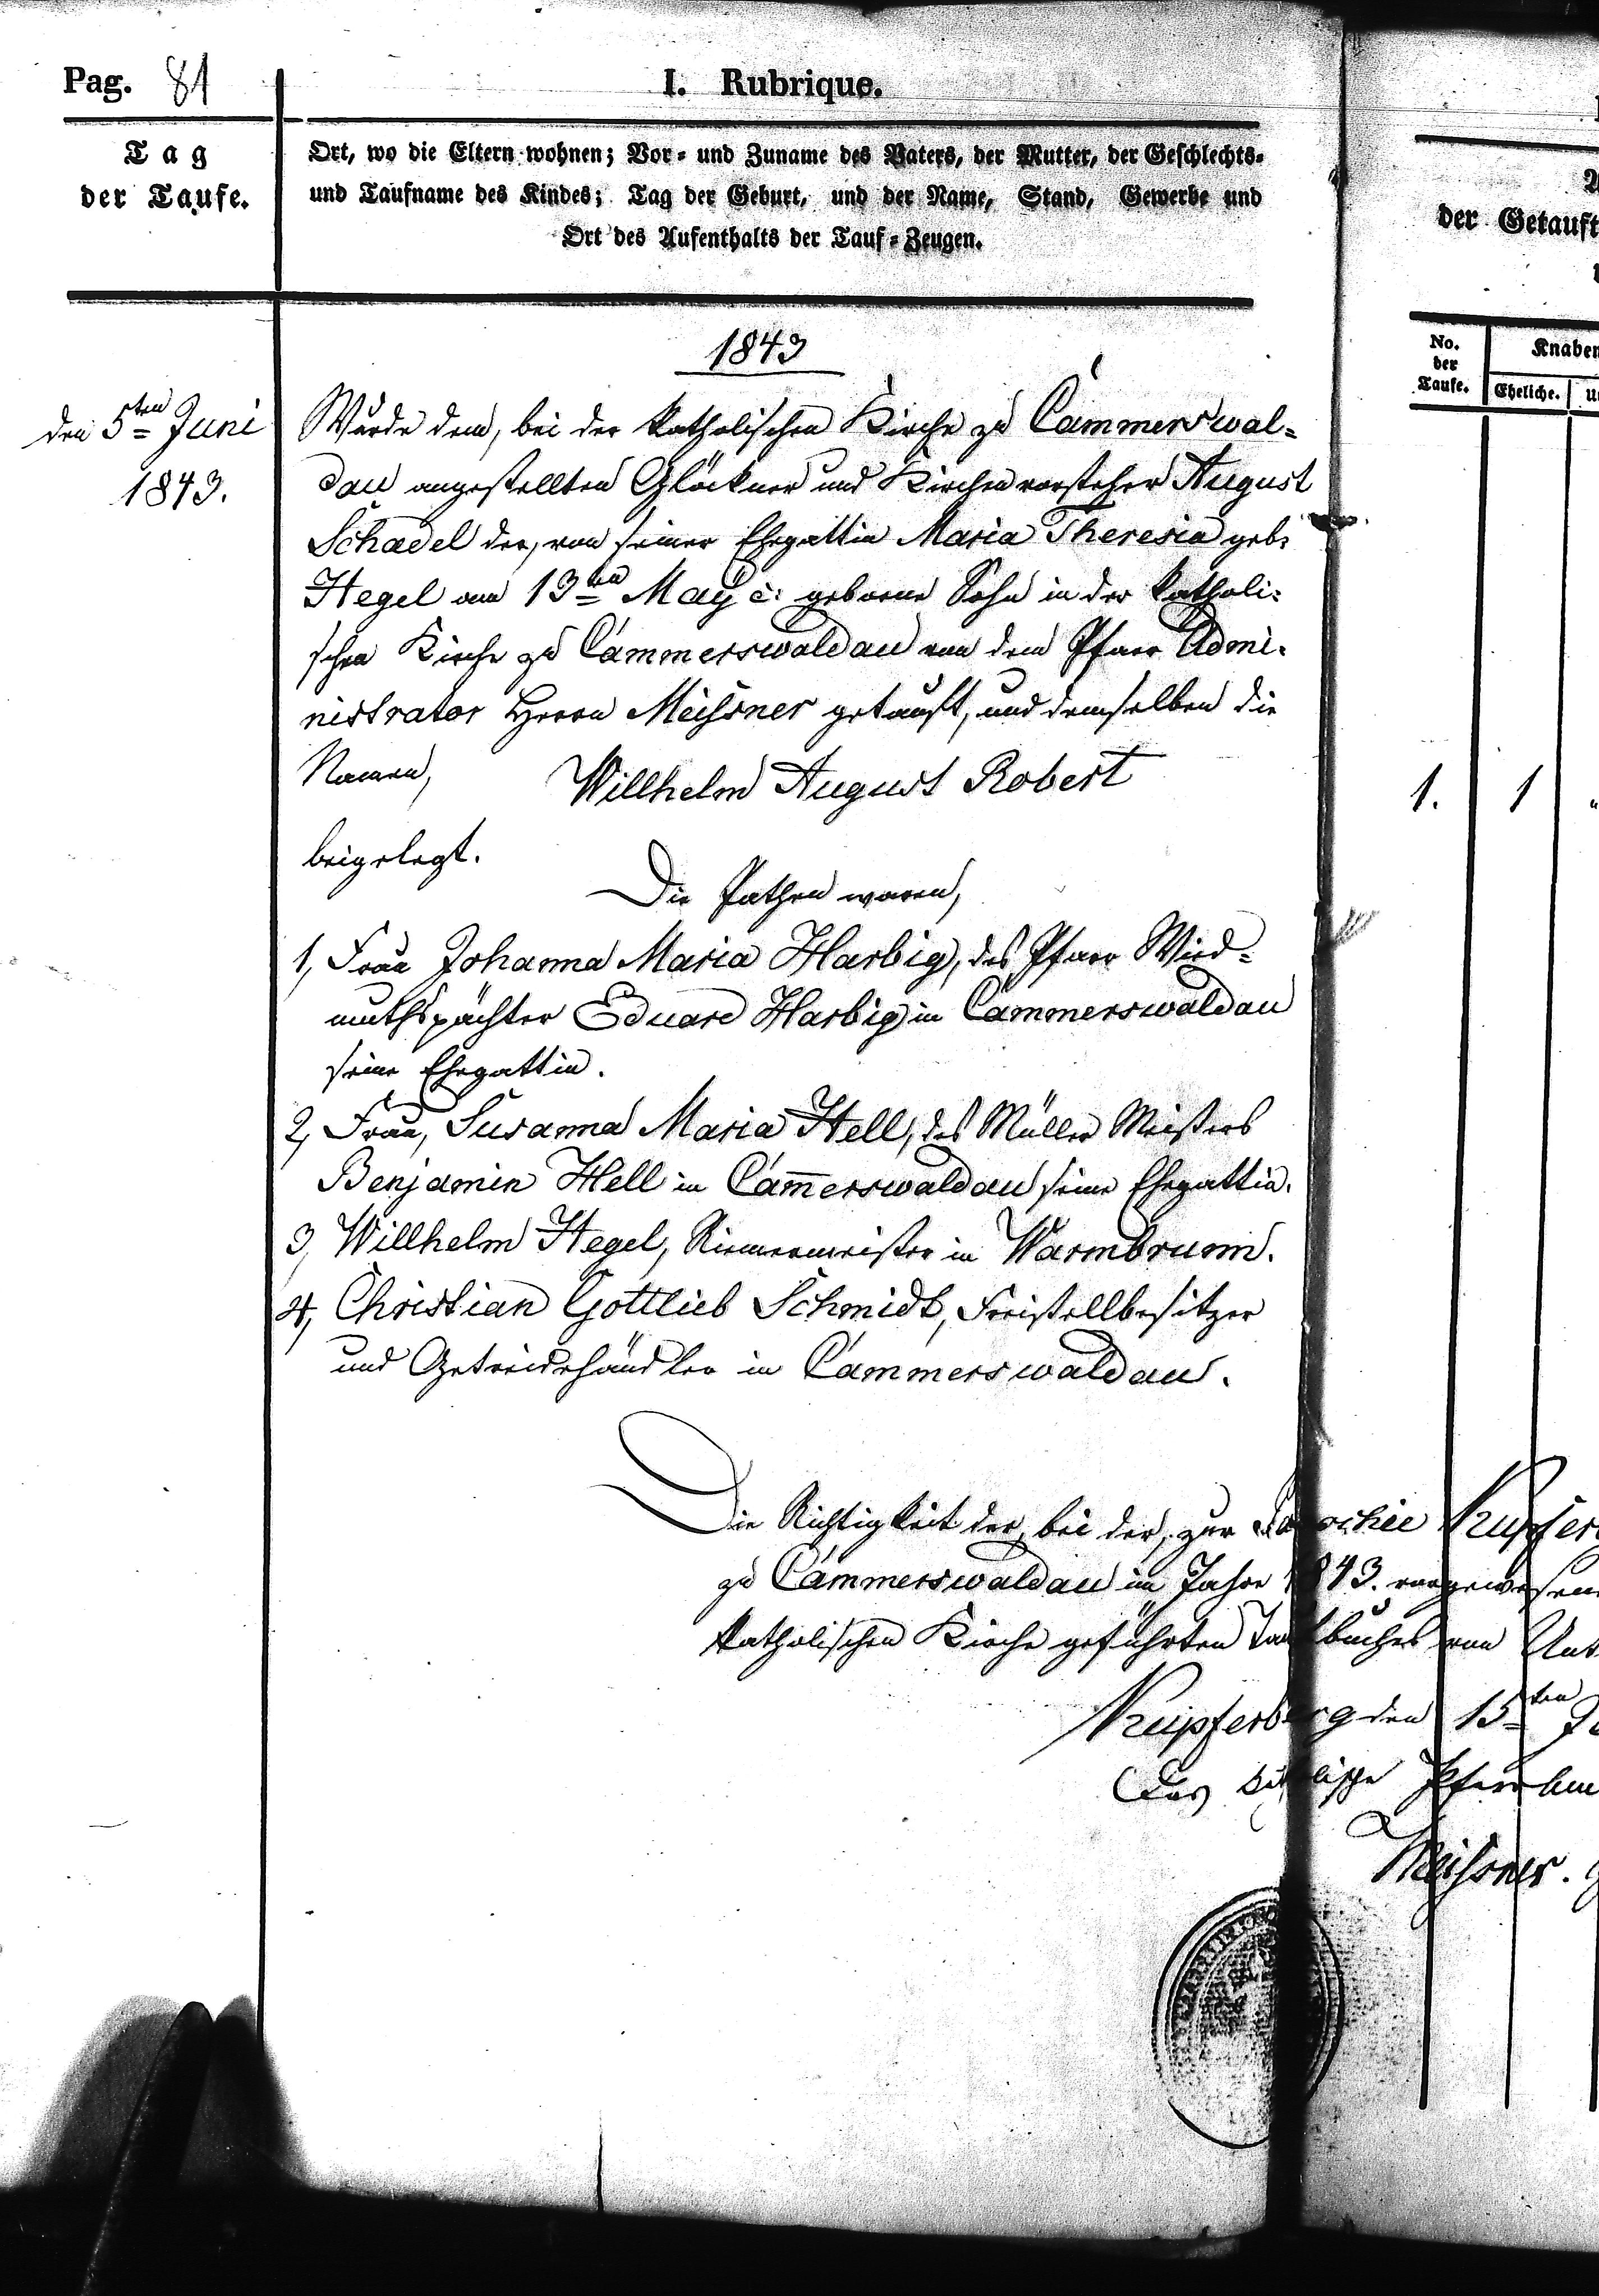 Pag. 81
I. Rubrique.
Tag
der Taufe.
Ort, wo die Eltern wohnen; Vor- und Zuname des Vaters, der Mutter, der Geschlechts-
und Taufname des Kindes; Tag der Geburt, und der Name, Stand, Gewerbe und
Ort des Aufenthalts der Tauf-Zeugen.
1843
den 5ten Juni
1843.
Wurde dem, bei der katholischen Kirche zu Cammerswal-
dau angestellten Glöckner und Kirchenvorsteher August
Schadel der, von seiner Ehegattin Maria Theresia geb:
Hegel am 13ten May c: geborne Sohn in der katholi-
schen Kirche zu Cammerswaldau von dem Pfarr Admi-
nistrator Herrn Meissner getauft, und demselben die
Namen, Willhelm August Robert
beigelegt.
Die Pathen waren,
1, Frau Johanna Maria Harbig, des Pfarr Wied-
muthspächter Eduard Harbig in Cammerswaldau
seine Ehegattin.
2, Frau, Susanna Maria Hell, des Müller Meisters
Benjamin Hell in Cam̅erswaldau seine Ehegattin.
3, Willhelm Hegel, Riemermeister in Warmbrunn.
4, Christian Gottlieb Schmidt, Freistellbesitzer
und Getreidehändler in Cammerswaldau.
Die Richtigkeit der, bei der, zur Parochie Kupfer
zu Cammerswaldau im Jahre 1843. vorgewesen
katholischen Kirche geführten Taufbuches von
Kupferberg den 15ten
Das Pfarr
Meissner.
der Getauft
No.
der
Taufe.
Knaben
Eheliche.
1. 1